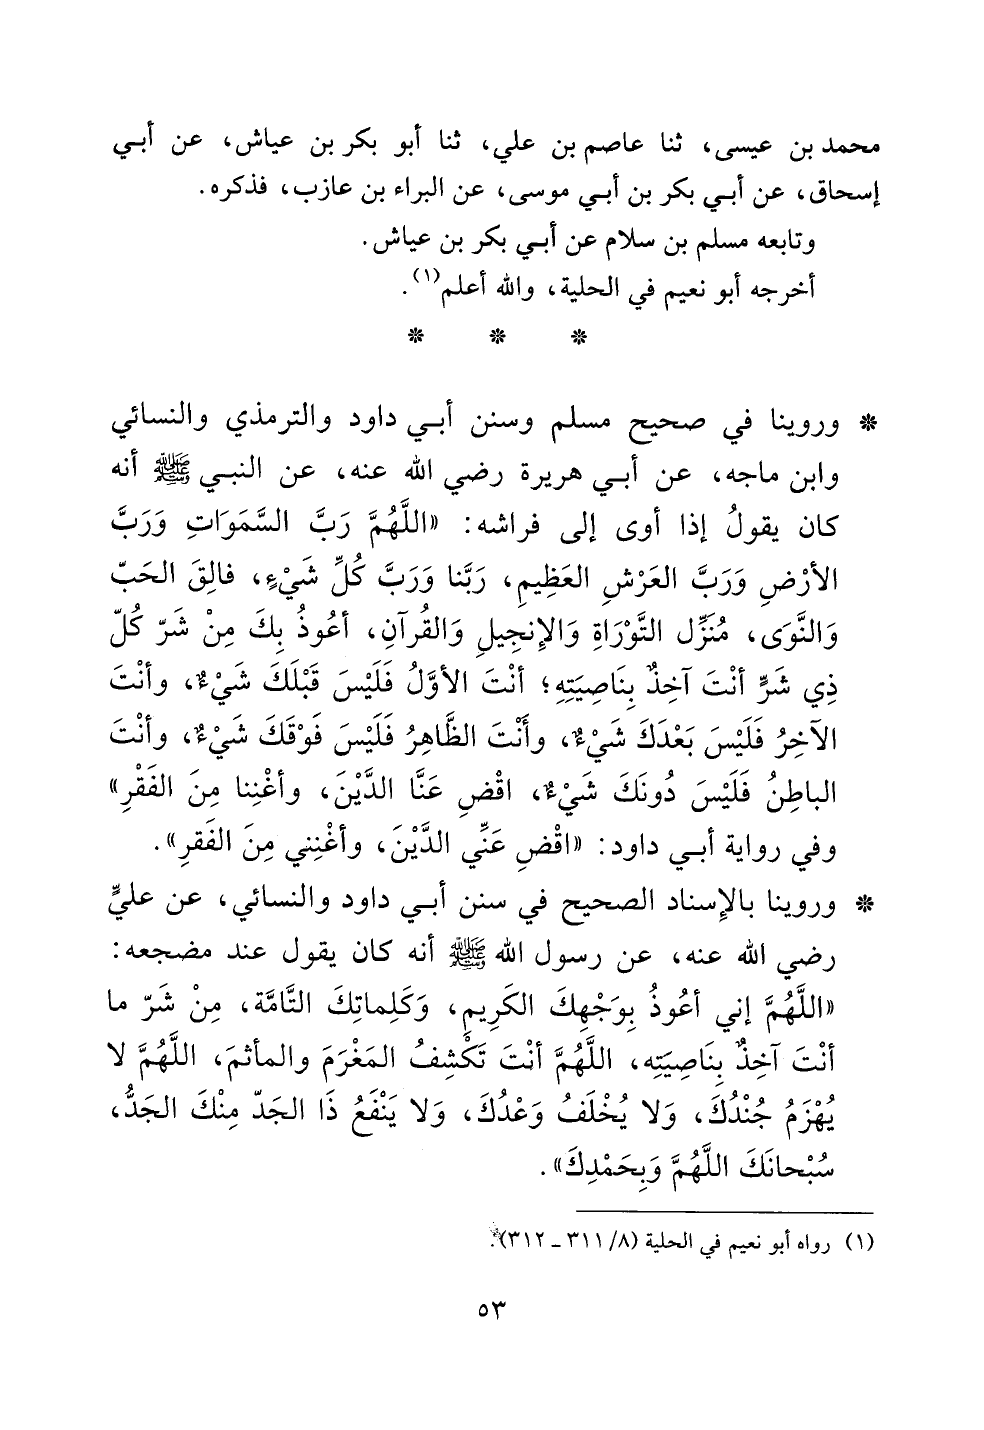 محمد بن عيسى، ثنا عاصم بن علي، ثنا أبو بكر بن عياش، عن أبـي
إسحاق، عن أبـي بكر بن أبـي موسى، عن البراء بن عازب، فذكره.
وتابعه مسلم بن سلام عن أبـي بكر بن عياش.
أخرجه أبو نعيم في الحلية، والله أعلم(١).
* * *
* وروينا في صحيح مسلم وسنن أبـي داود والترمذي والنسائي
وابن ماجه، عن أبـي هريرة رضي الله عنه، عن النبـي ﷺ أنه
كان يقولُ إذا أوى إلى فراشه: «اللَّهُمَّ رَبَّ السَّمَوَاتِ وَرَبَّ
الأرْضِ وَرَبَّ العَرْشِ العَظِيمِ، رَبَّنا وَرَبَّ كُلِّ شَيْءٍ، فالِقَ الحَبّ
وَالنَّوَى، مُنَزِّل التَّوْرَاةِ وَالإنجيلِ وَالقُرآنِ، أعُوذُ بِكَ مِنْ شَرّ كُلّ
ذِي شَرٍّ أنْتَ آخِذٌ بِنَاصِيَتِهِ؛ أنْتَ الأوَّلُ فَلَيْسَ قَبْلَكَ شَيْءٌ، وأنْتَ
الآخِرُ فَلَيْسَ بَعْدَكَ شَيْءٌ، وأَنْتَ الظَّاهِرُ فَلَيْسَ فَوْقَكَ شَيْءٌ، وأنْتَ
الباطِنُ فَلَيْسَ دُونَكَ شَيْءٌ، اقْضِ عَنَّا الدَّيْنَ، وأغْنِنا مِنَ الفَقْرِ»
وفي رواية أبـي داود: «اقْضِ عَنِّي الدَّيْنَ، وأغْنِني مِنَ الفَقرِ».
* وروينا بالإسناد الصحيح في سنن أبـي داود والنسائي، عن عليٍّ
رضي الله عنه، عن رسول الله ﷺ أنه كان يقول عند مضجعه:
«اللَّهُمَّ إني أعُوذُ بِوَجْهِكَ الكَرِيمِ، وَكَلِماتِكَ التَّامَّة، مِنْ شَرّ ما
أنْتَ آخِذٌ بِنَاصِيَتِه، اللَّهُمَّ أنْتَ تَكْشِفُ المَغْرَمَ والمأثمَ، اللَّهُمَّ لا
يُهْزَمُ جُنْدُكَ، وَلا يُخْلَفُ وَعْدُكَ، وَلا يَنْفَعُ ذَا الجَدّ مِنْكَ الجَدُّ،
سُبْحانَكَ اللَّهُمَّ وَبِحَمْدِكَ».
(١) رواه أبو نعيم في الحلية (٨/ ٣١١ ـ ٣١٢).
٥٣